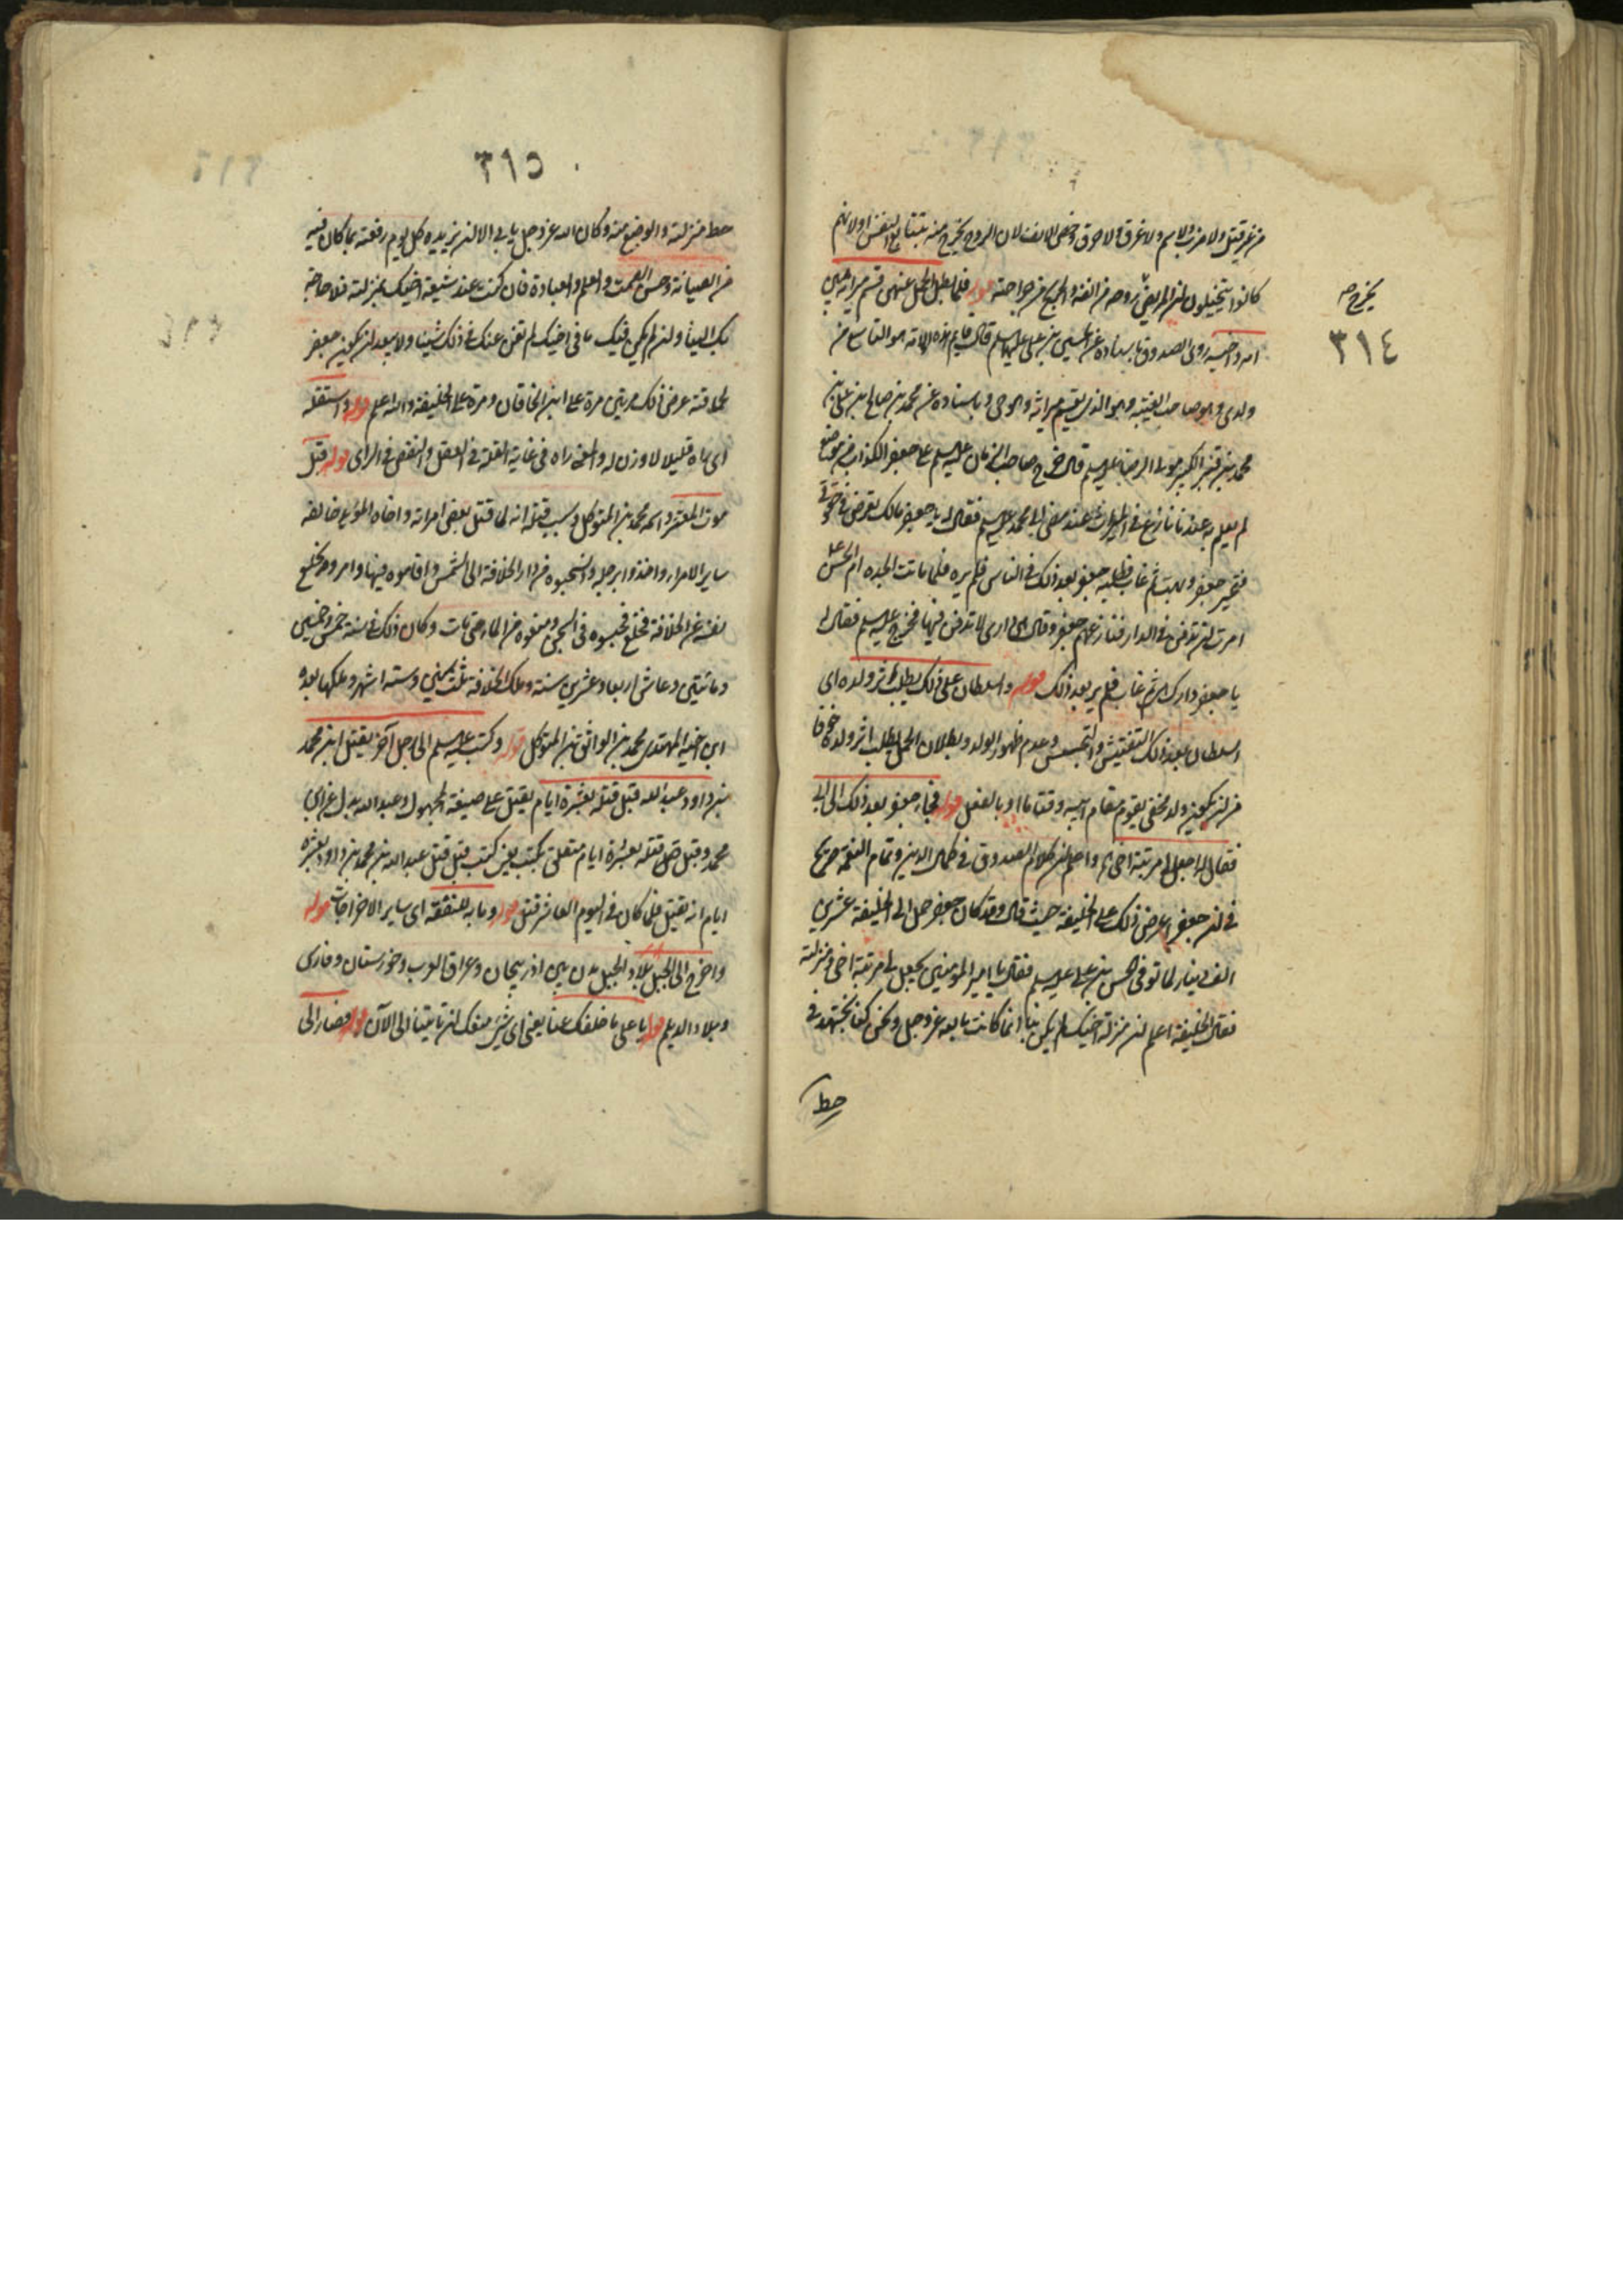 من غير قتل ولا ضرب ولا سم ولا غرق ولا حرق وخص الانف لان الروح يخرج منه بتتابع النفس او لانهم
كانوا يتخيلون لن المريض يخرج روحه من انفه والجريح من جراحته قوله فلما بطل الحمل عنهن قسم ميراثه بين
امه واخيه روى الصدوق باسناده عن الحسين بن علي عليهما السلام قال قايم هذه الامة هو التاسع من
ولدي وهو صاحب الغيبة وهو الذي يقسم ميراثه وهو حي وباسناده عن محمد بن صالح بن علي بن
محمد بن قنبر الكبير مولى الرضا عليه السلم قال خرج صاحب الزمان عليه السلم على جعفر الكذاب من موضع
لم يعلم به عند ما نازع في الميراث عند مضي ابي محمد عليه السلم فقال له يا جعفر مالك تعرض في حقوقي
فتحير جعفر وبهت ثم غاب فطلبه جعفر بعد ذلك في الناس فلم يره فلما ماتت الجدة ام الحسن
امرت لن تدفن في الدار فنازعهم جعفر وقال هي داري لا تدفن فيها فخرج عليه السلم فقال له
يا جعفر دارك هي ثم غاب فلم ير بعد ذلك قوله والسلطان على ذلك يطلب اثر ولده اي
السلطان بعد ذلك التفتيش والتجسس وعدم ظهور الولد وبطلان الحمل يطلب اثر ولده خوفا
من لن يكون ولد مخفي يقوم مقام ابيه وقتا ما او بالفعل قوله فجاء جعفر بعد ذلك الى ابي
فقال له اجعل لي مرتبة اخي اه واعلم لن كلام الصدوق في كمال الدين وتمام النعمة صريح
في لن جعفر عرض ذلك على الخليفة حيث قال وقد كان جعفر حمل الى الخليفة عشرين
الف دينار لما توفي الحسن بن علي عليه السلم فقال يا امير المؤمنين تجعل لي مرتبة اخي ومنزلته
فقال الخليفة اعلم لن منزلة اخيك لم يكن بنا انما كانت بالله عز وجل ونحن كنا نجتهد في
حط
يخرج صح
٣١٤
٣١٥
حط منزلته والوضع منه وكان الله عز وجل يابى الا لن يزيده كل يوم رفعة بما كان فيه
من الصيانة وحسن السمت والعلم والعبادة فان كنت عند شيعة اخيك بمنزلته فلا حاجة
بك الينا ولن لم يكن فيك ما في اخيك لم نغن عنك في ذلك شيئا ولا يبعد لن يكون جعفر
لحماقته عرض ذلك مرتين مرة على ابن الخاقان ومرة على الخليفة والله اعلم قوله واستقله
اي راه قليلا لا وزن له والمعنى راه في غاية القلة في العقل والنقص في الراي قوله قبل
موت المعتز واسمه محمد بن المتوكل وسبب قتله انه لما قتل بعض امرائه واخاه المؤيد خالفه
ساير الامراء واخذوا برجله وانسحبوه من دار الخلافة الى الشمس واقاموه فيها وامروه بخلع
نفسه عن الخلافة فخلع فحبسوه في السجن ومنعوه من الماء حتى مات وكان ذلك في سنة خمس وخمسين
ومائتين وعاش اربعا وعشرين سنة وملك الخلافة ثلث سنين وستة اشهر وملكها بعده
ابن اخيه المهتدي محمد بن الواثق بن المتوكل قوله وكتب عليه السلم الى رجل آخر يقتل ابن محمد
بن داود عبد الله قبل قتله بعشرة ايام يقتل على صيغة المجهول وعبد الله بدل عن ابن
محمد وقبل قتله بعشرة ايام متعلق بكتب يعني كتب قبل قتل عبد الله بن محمد بن داود بعشرة
ايام انه يقتل فلما كان في اليوم العاشر قتل قوله وماية للنفقة اي ساير الاخراجات قوله
واخرج الى الجبل بلاد الجبل مدن بين اذربيجان وعراق العرب وخوزستان وفارس
وبلاد الديلم قوله يا علي ما خلفك عنا يعني اي شيء منعك لن تاتينا الى الآن قوله فصار الى